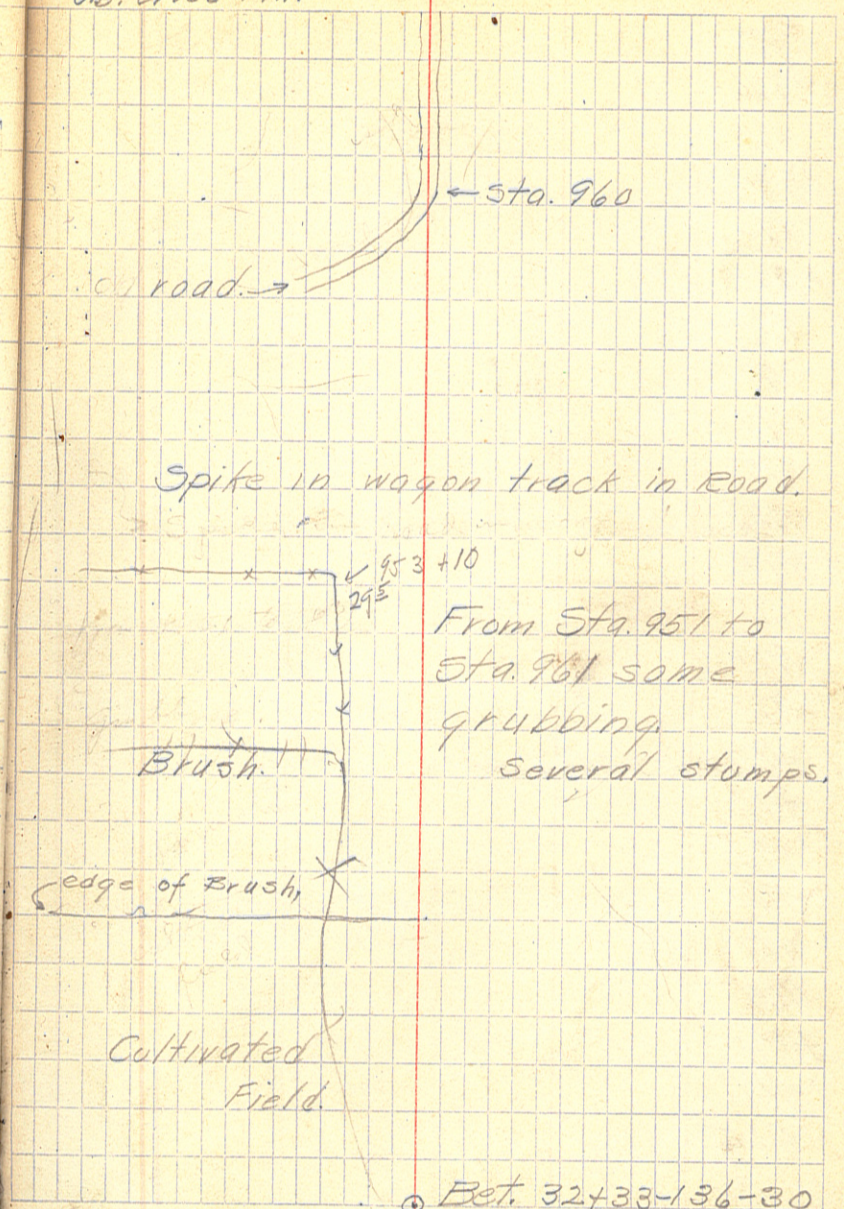 ← Sta. 960
road. →
Spike in wagon track in Road.
953 +10
29⁵
From Sta. 951 to
Sta. 961 some
grubbing.
Several stumps.
Brush.
edge of Brush,
Cultivated
Field.
Bet. 32+33-136-30